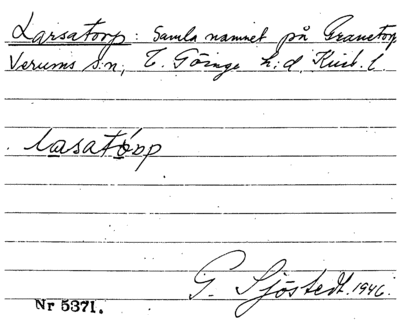 Larsatorp: Gamla namnet på Granetorp
Verums s:n, V. Göinge h:d, Krist. l.
lasatóop
G. Sjöstedt. 1946.
Nr 5371.